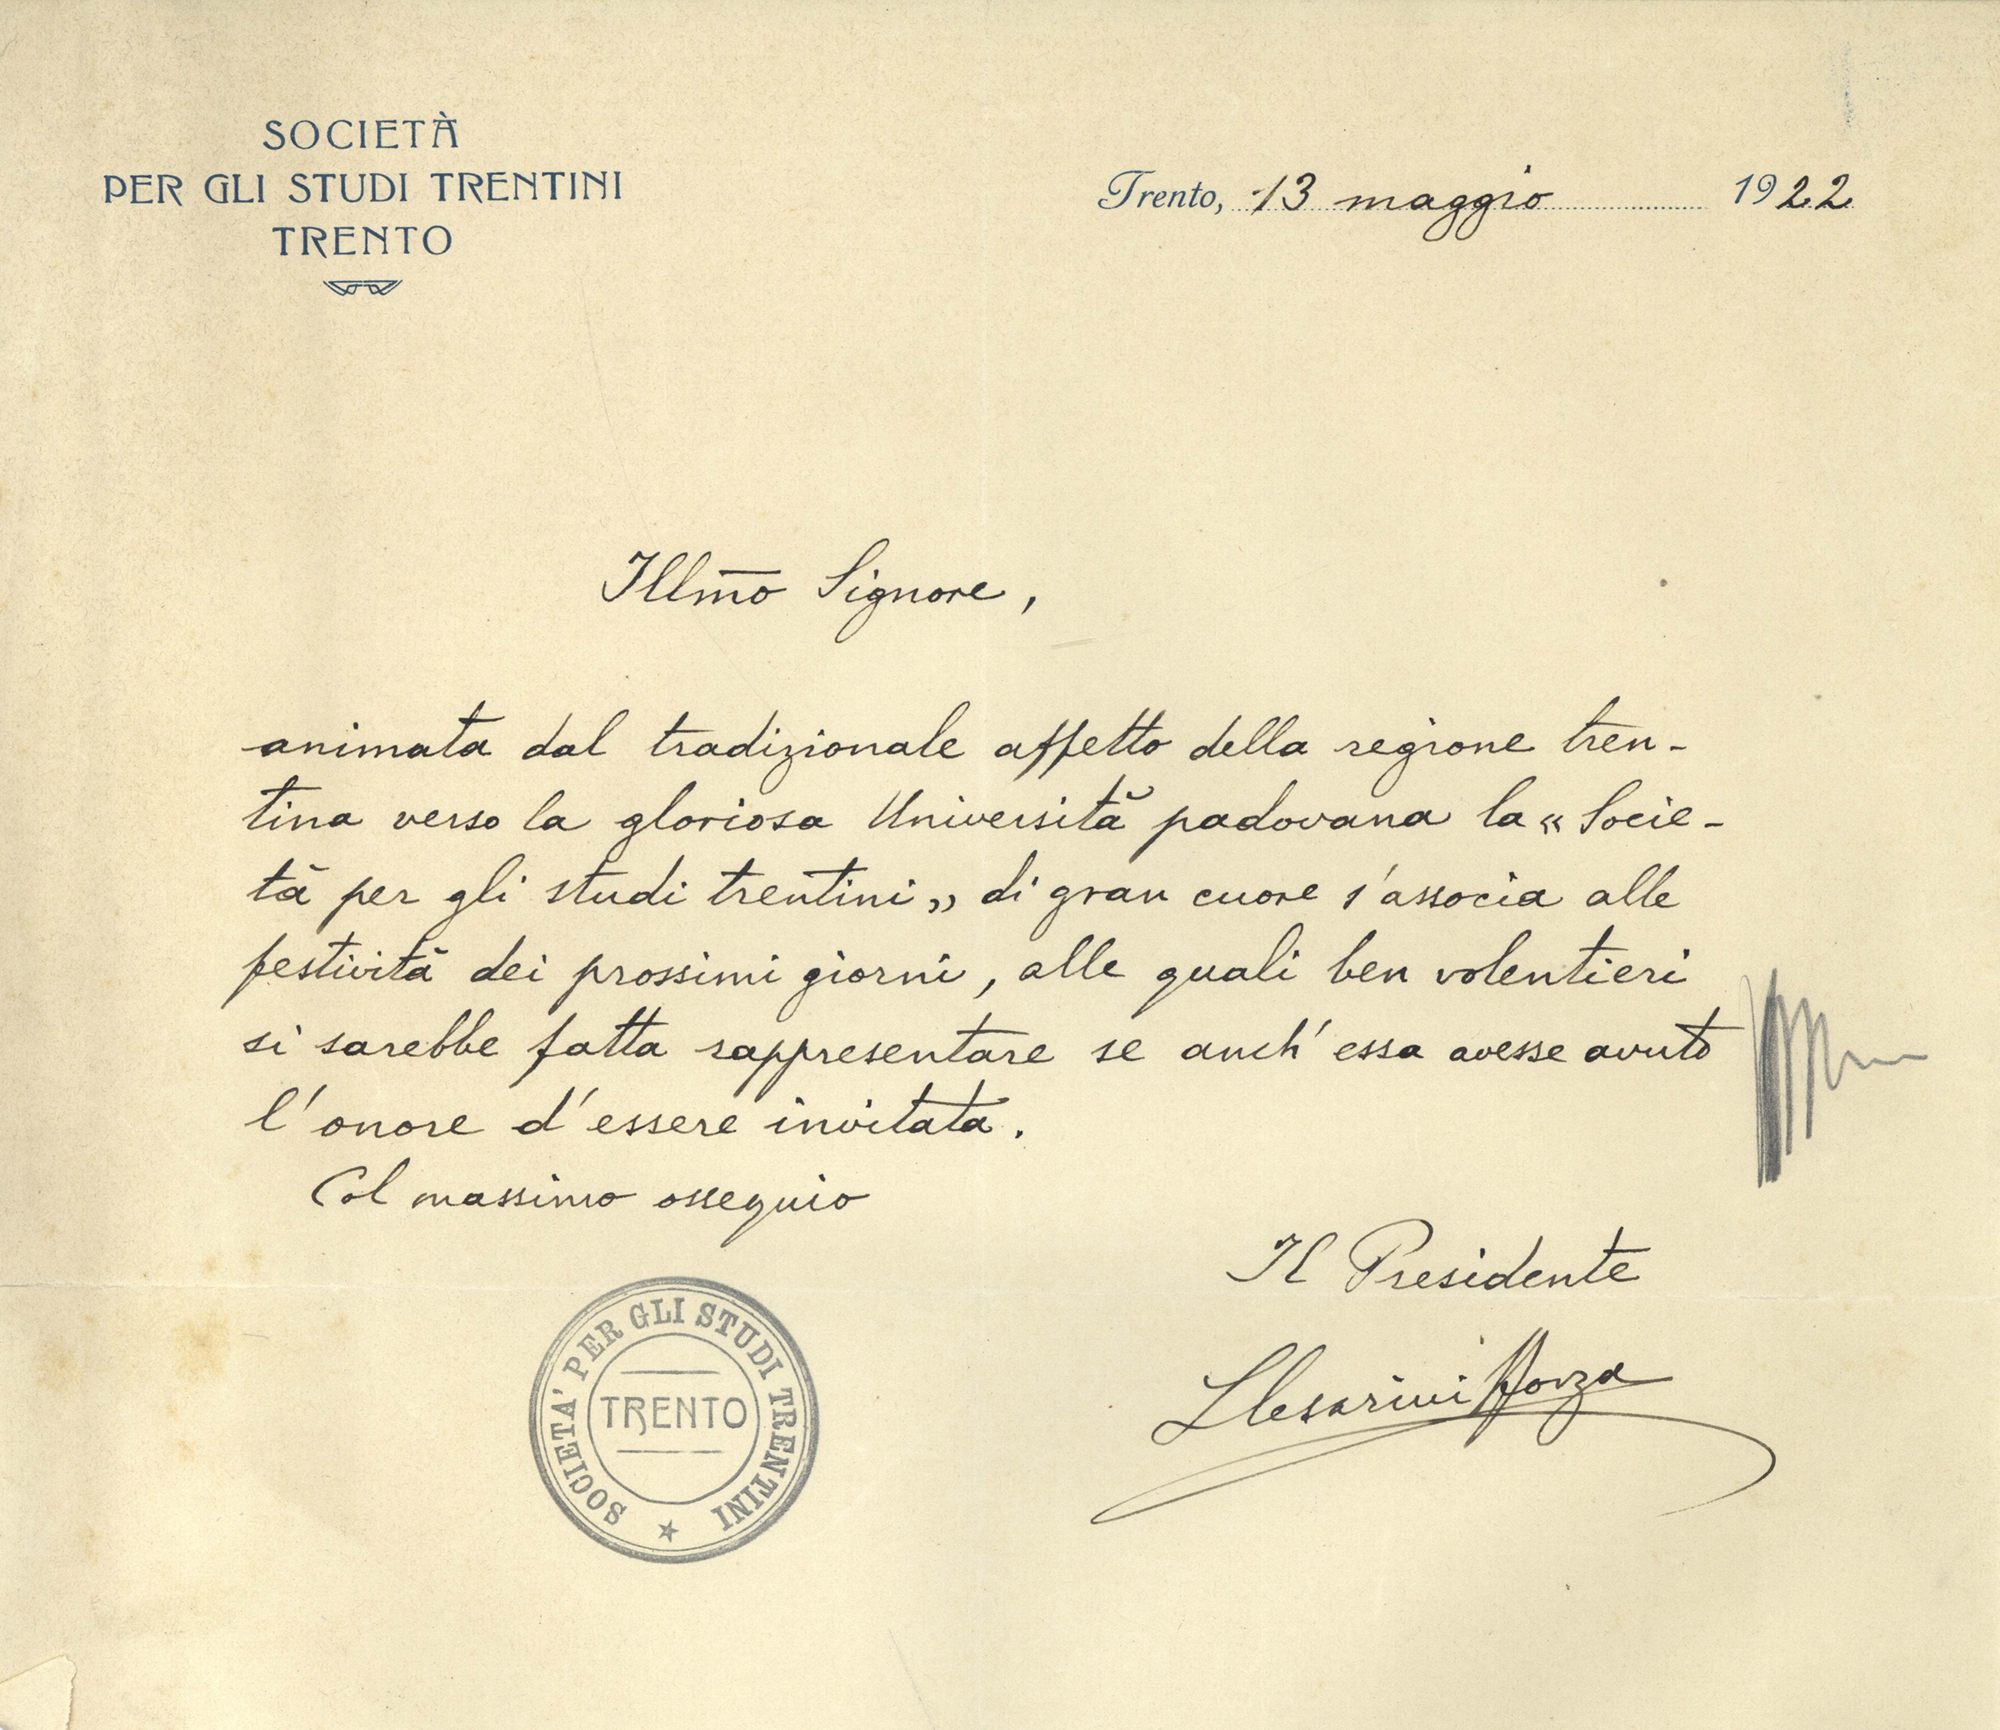 SOCIETÀ
PER GLI STUDI TRENTINI
TRENTO
Trento, 13 maggio 1922
Illmo Signore,
animata dal tradizionale affetto della regione tren-
tina verso la gloriosa Università padovana la « Socie-
tà per gli studi trentini » di gran cuore s'associa alle
festività dei prossimi giorni, alle quali ben volentieri
si sarebbe fatta rappresentare se anch'essa avesse avuto
l'onore d'essere invitata.
Col massimo ossequio
Il Presidente
SOCIETA' PER GLI STUDI TRENTINI
TRENTO